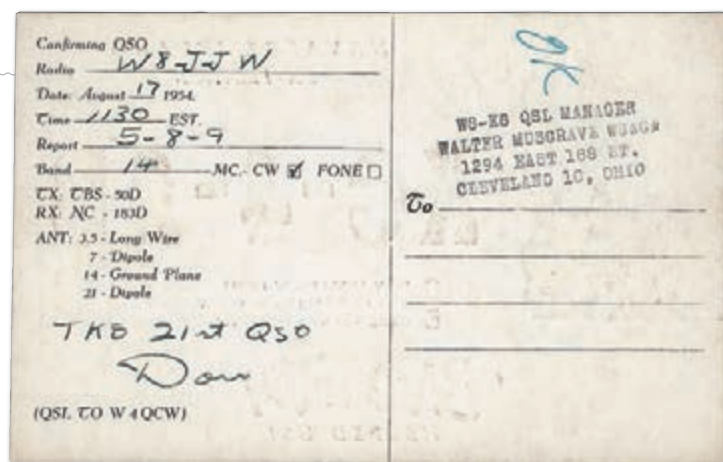 Confirming QSO
Radio W8-J-J W
Date: August 17 1954.
Time 1130 EST.
Report 5-8-9
Band 14 MC.- CW ☑ FONE ☐
TX: TBS - 50D
RX: NC - 183D
ANT: 3.5 - Long Wire
7 - Dipole
14 - Ground Plane
21 - Dipole
TKS 21st QSO
Don
(QSL TO W4QCW)
OK
W8-K8 QSL MANAGER
WALTER MUSGRAVE
1294 EAST 188 ST.
CLEVELAND 10, OHIO
To